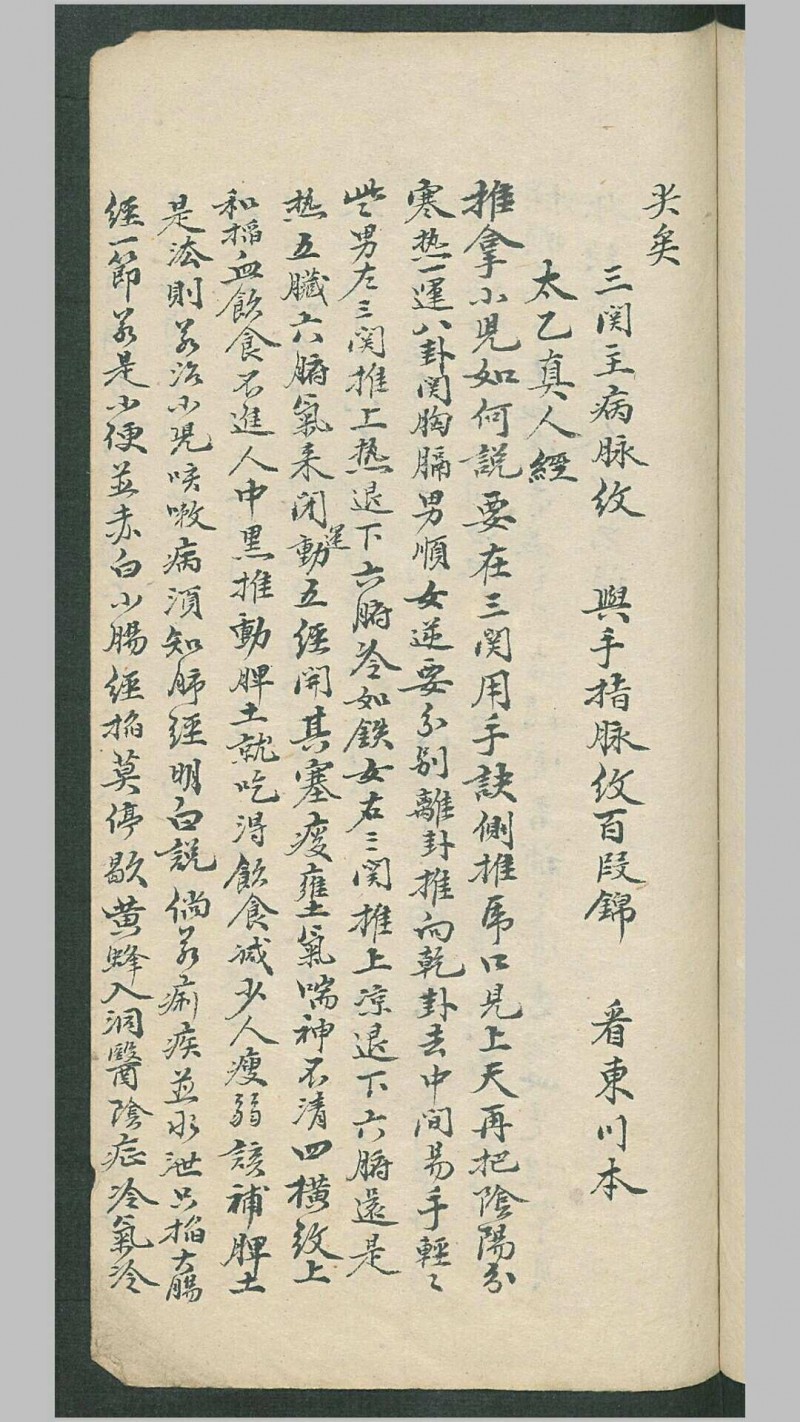 关矣
三関主病脉紋 與手指脉紋百段錦 看東川本
太乙真人經
推拿小児如何説要在三関用手訣側推虎口見上天再把陰陽分
寒热一運八卦関胸膈男順女逆要分别離卦推向乾卦去中间易手輕々
些男左三関推上热退下六腑冷如鉄女右三関推上凉退下六腑還是
热五臟六腑氣来闭運動五經開其塞痰壅土氣喘神不清四横紋上
和掐血飲食不進人中黒推動脾土就吃淂飲食减少人瘦弱該補脾土
是法則若治小児咳嗽病湏知肺經明白説倘若痢疾並水泄只掐大腸
經一節若是小便並赤白小腸經掐莫停歇黄蜂入洞醫陰症冷氣冷